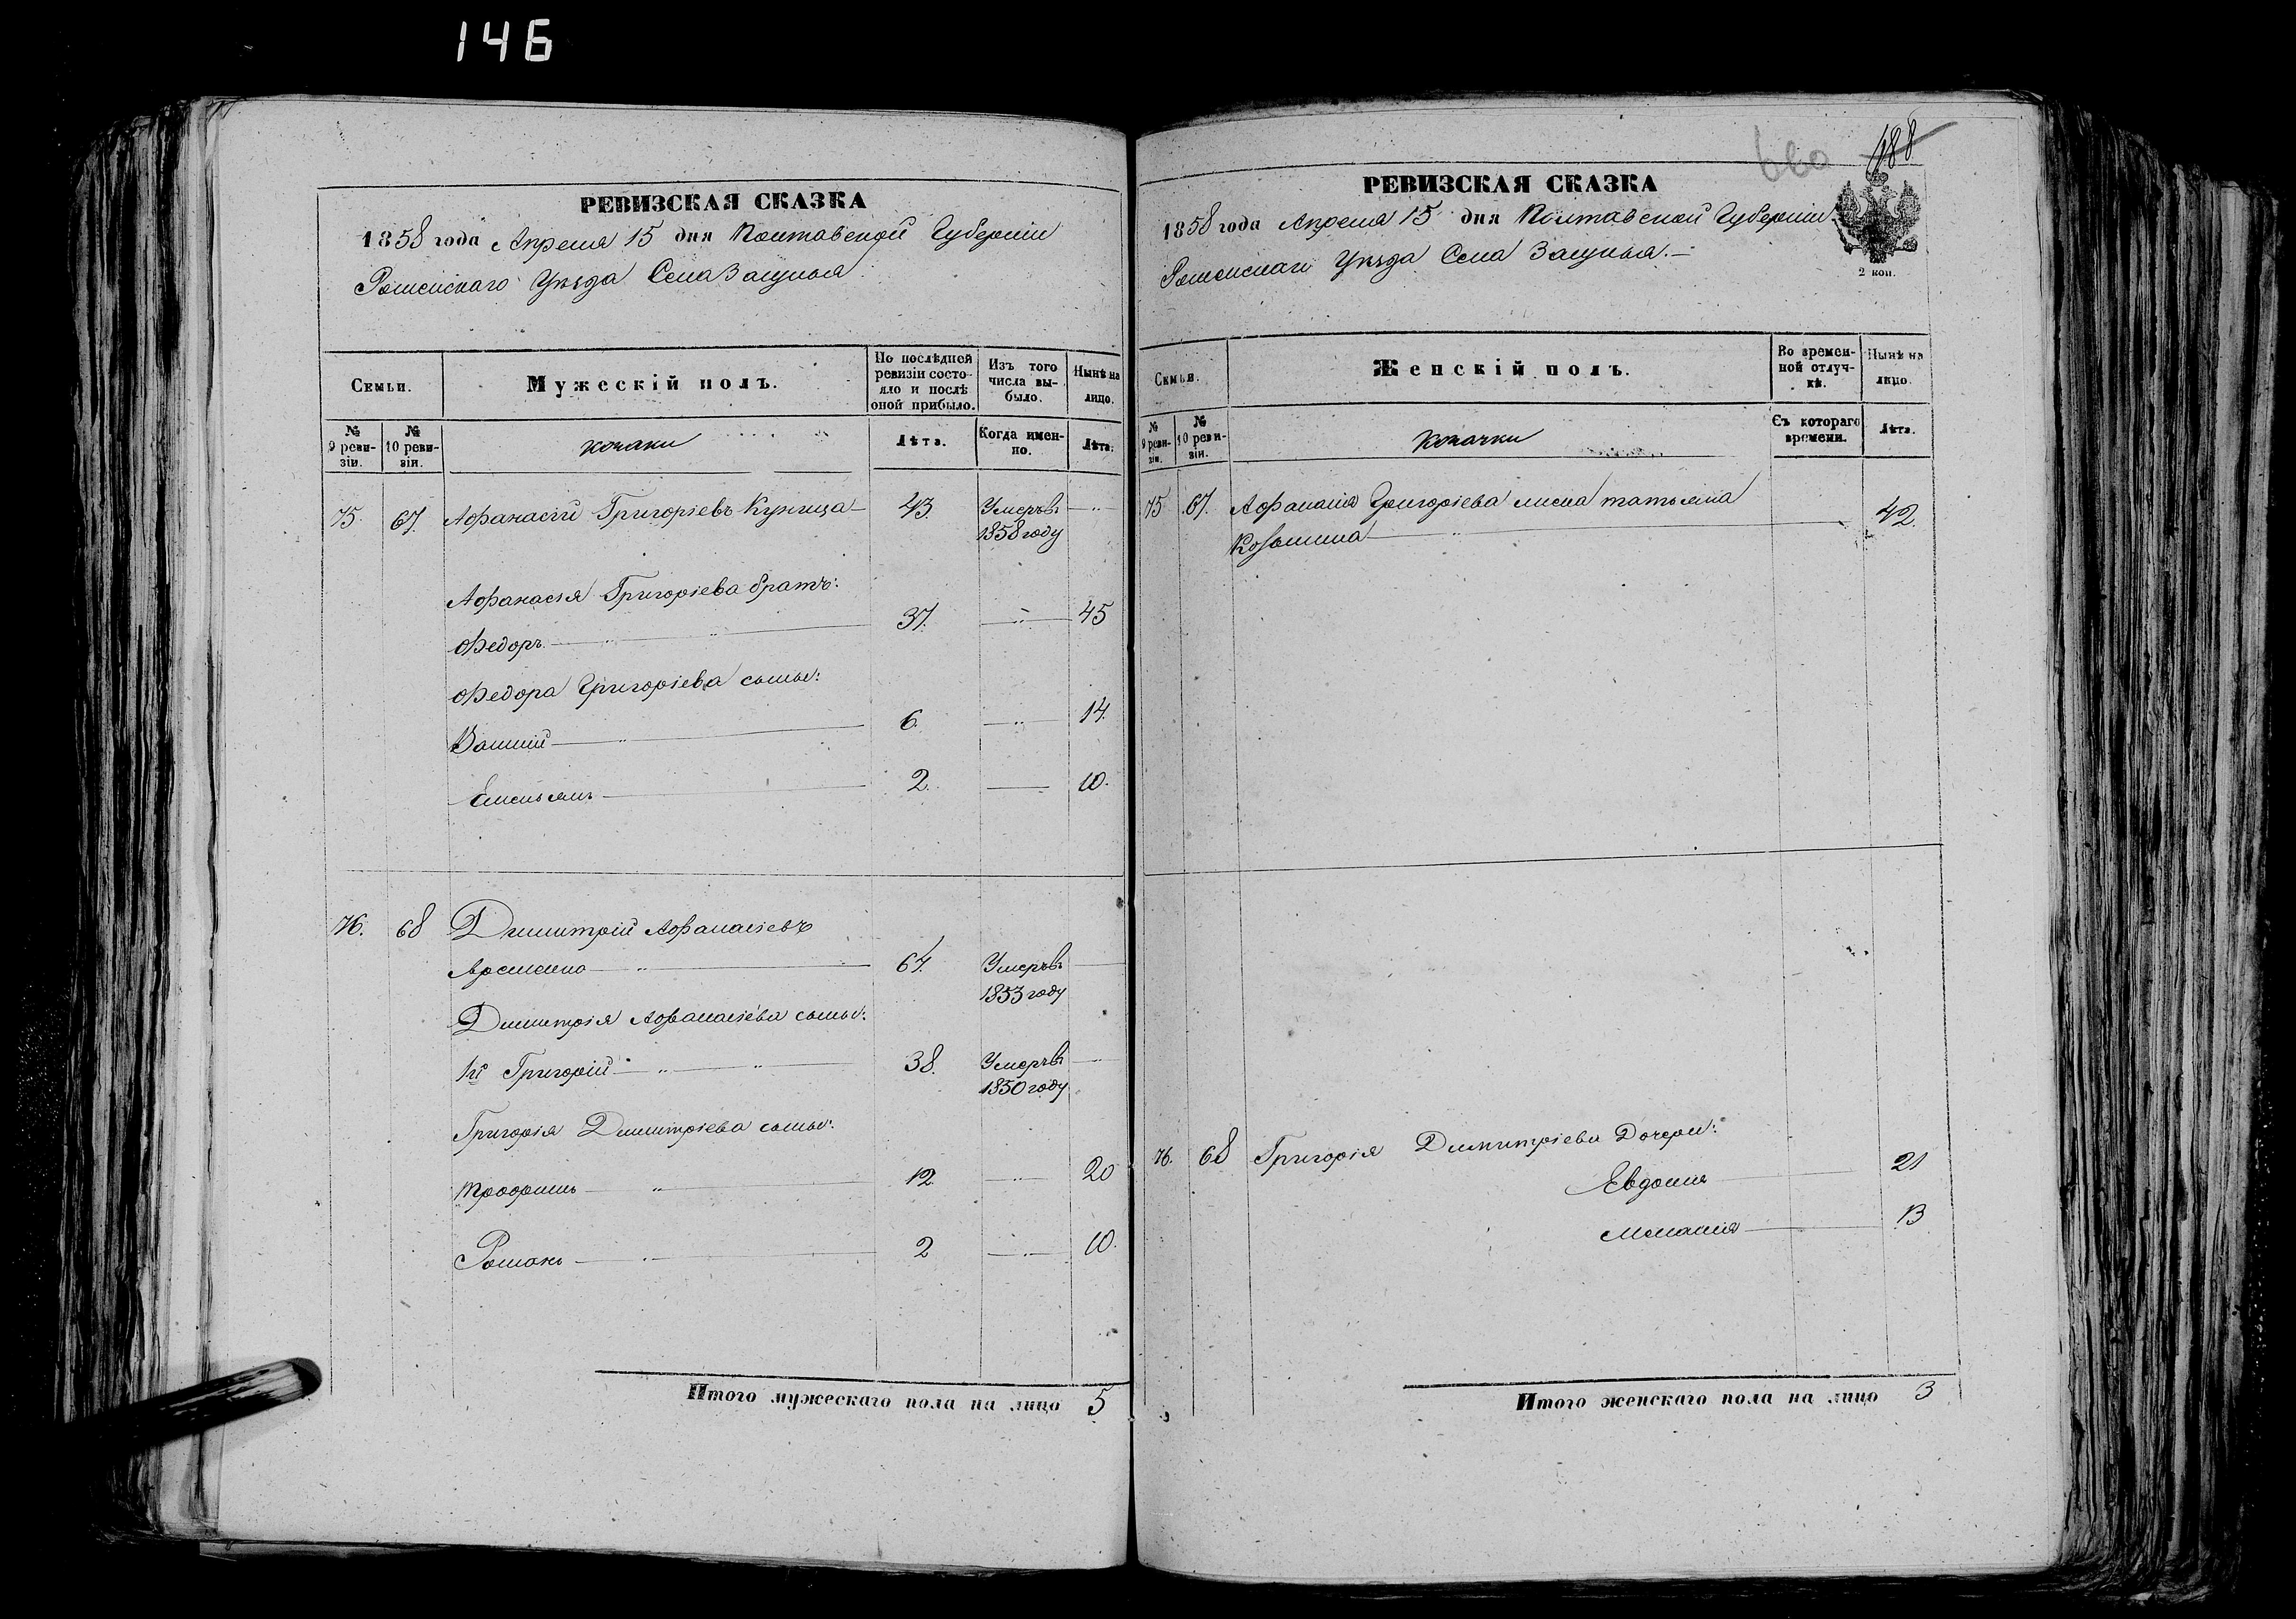 146
РЕВИЗСКАЯ СКАЗКА
1858 года Апреля 15 дня Полтавской Губерніи
Роменскаго Уѣзда Села Засулья
Семьи.
Мужескій полъ.
По послѣдней ревизіи состояло и послѣ оной прибыло.
Изъ того числа выбыло.
Нынѣ на лицо.
№ 9 ревизіи.
№ 10 ревизіи.
козаки
Лѣта.
Когда именно.
Лѣта.
75. 67. Афанасій Григоріевъ Куница 43 Умеръ въ
1858 году
Афанасія Григоріева братъ:
Федоръ 37. 45
Федора Григоріева сыны:
6. 14.
Емельянъ 2. 10.
76. 68 Димитрій Афанасіевъ
67. Умеръ въ
1853 году
Димитрія Афанасіева сыны:
1й Григорій 38. Умеръ въ
1850 году
Григорія Димитріева сыны:
Трофимъ 12 20
Романъ 2 10.
Итого мужескаго пола на лицо 5
660
188
РЕВИЗСКАЯ СКАЗКА
1858 года Апреля 15 дня Полтавской Губерніи
Роменскаго Уѣзда Села Засулья.
2 коп.
Семьи.
Женскій полъ.
Во временной отлучкѣ.
Нынѣ на лицо.
№ 9 ревизіи.
№ 10 ревизіи.
козачки
Съ котораго времени.
Лѣта.
75 67. Афанасія Григоріева жена татьяна
Козьмина 42.
76. 68 Григорія Димитріева Дочери:
Евдокія 21
Меланія 13
Итого женскаго пола на лицо 3